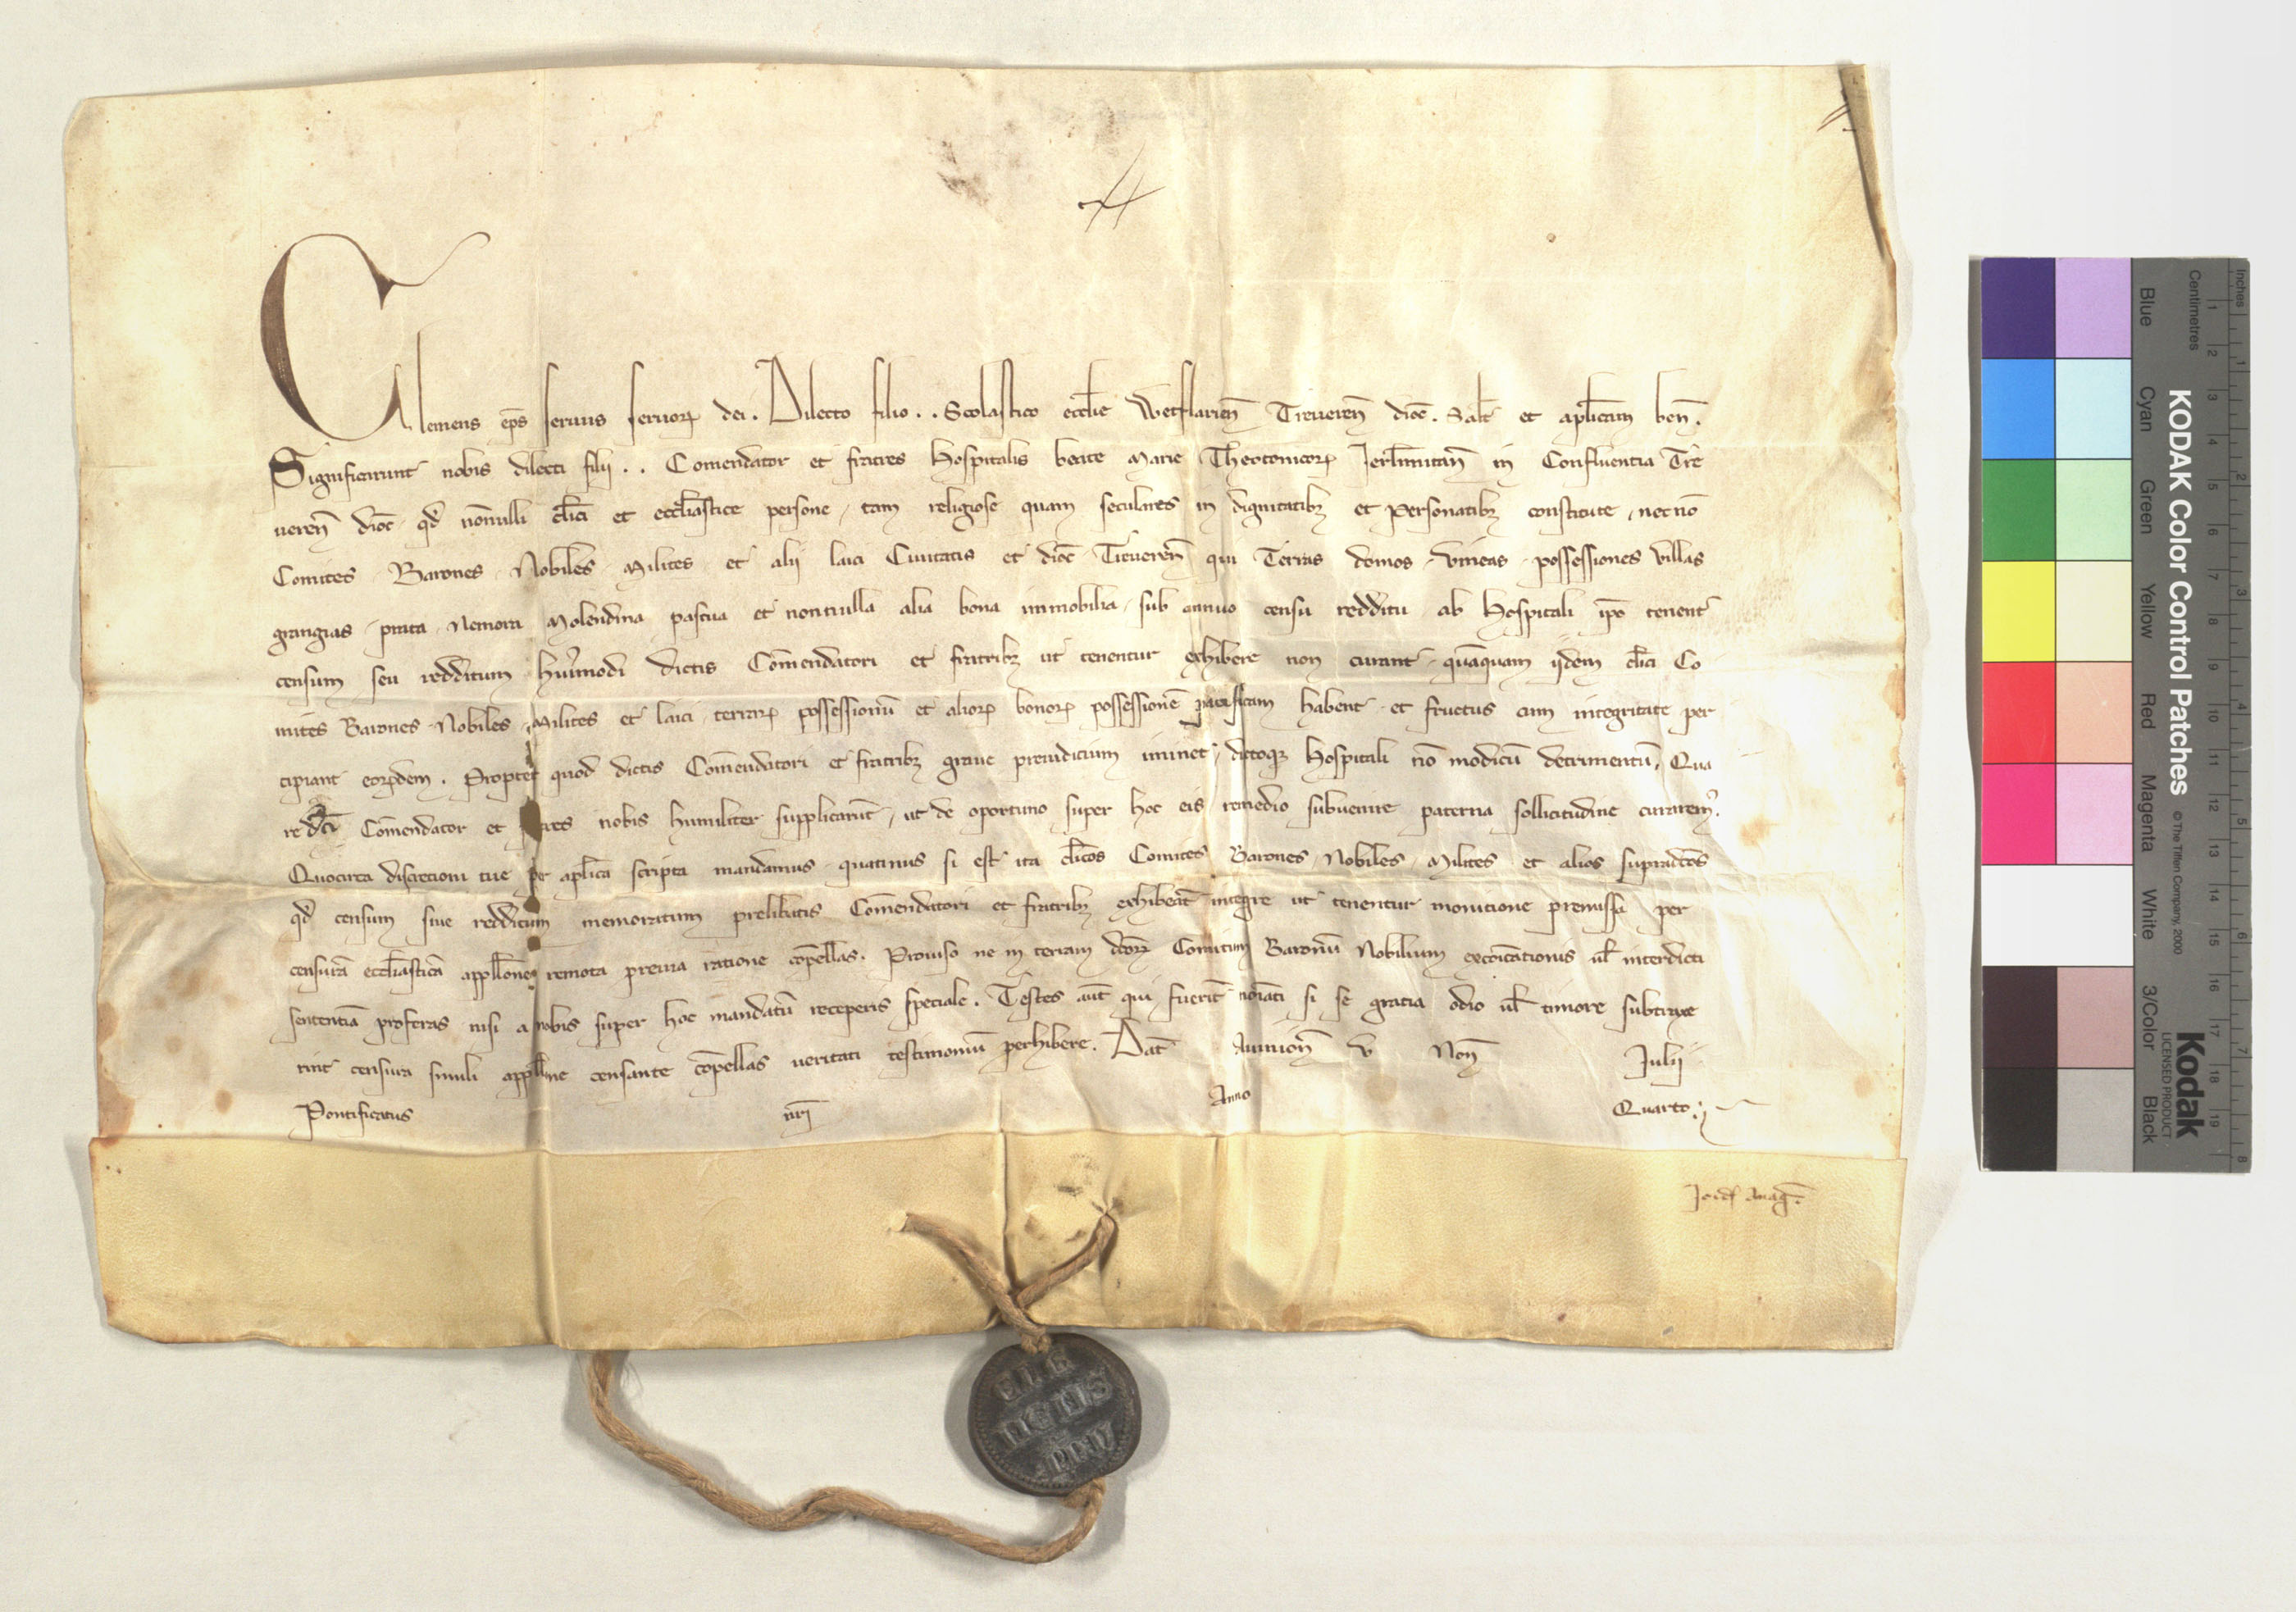 Clemens ep̄s seruus seruoꝝ dei. Dilecto filio . . Scolastico eccl̄ie Wetflarien̄ Treueren̄ dioc̄. Salt̄ et apl̄icam ben̄.
Significarunt nobis dilecti filii . . Comendator et fratres Hospitalis beate Marie Theotonicoꝝ Jerl̄imitan̄ in Confluentia Tre
ueren̄ dioc̄ qd̄ nōnulli cl̄ici et eccl̄iastice persone, tam religiose quam seculares in dignitatibꝫ et personatibꝫ constitute, necnō
Comites Barones Nobiles Milites et alij laici Ciuitatis et dioc̄ Treueren̄ qui Terras domos vineas possessiones villas
grangias prata Nemora Molendina pascua et nonnulla alia bona immobilia, sub annuo censu redditu ab Hospitali ip̄o tenent
censum seu redditum huiꝰmodi dictis Cōmendatori et fratribꝫ ut tenentur exhibere non curant, quāquam ijdem cl̄ici Co
mites Barones Nobiles Milites et laici terraꝝ possessionū et alioꝝ bonoꝝ possessionē pacificam habent et fructus cum integritate per
cipiant eoꝝdem. Propter quod dictis Cōmendatori et fratribꝫ graue preiudicium iminet, dictoqꝫ Hospitali nō modicū detrimentū. Qua
re dc̄i Cōmendator et fratres nobis humiliter supplicarūt, ut de oportuno super hoc eis remedio subuenire paterna sollicitudine curaremꝰ.
Quocirca discretioni tue per apl̄ica scripta mandamus quatinus si est ita cl̄icos Comites Barones Nobiles Milites et alios supradc̄os
qd̄ censum siue redditum memoratum prelibatis Cōmendatori et fratribꝫ exhibeāt integre ut tenentur monitione premissa per
censurā eccl̄iasticā appll̄one remota preuia ratione cōpellas. Prouiso ne in terram dc̄oꝝ Comitum Baronū Nobilium excōicationis ul̄ interdicti
sententiā proferas nisi a nobis super hoc mandatū receperis speciale. Testes aūt qui fuerīt noīati si se gratia odio ul̄ timore subtraxe
rint censura simili appll̄one cessante cōpellas ueritati testimoniū perhibere. Dat̄ Auinion̄ v Non̄ Julij
Pontificatus nr̄i Anno Quarto
Jord̄ Anaḡ.
CLE
MENS
PP V
KODAK Color Control Patches © The Tiffen Company, 2000
Kodak LICENSED PRODUCT
Blue Cyan Green Yellow Red Magenta White 3/Color Black
Inches 1 2 3 4 5 6 7 8
Centimetres 1 2 3 4 5 6 7 8 9 10 11 12 13 14 15 16 17 18 19